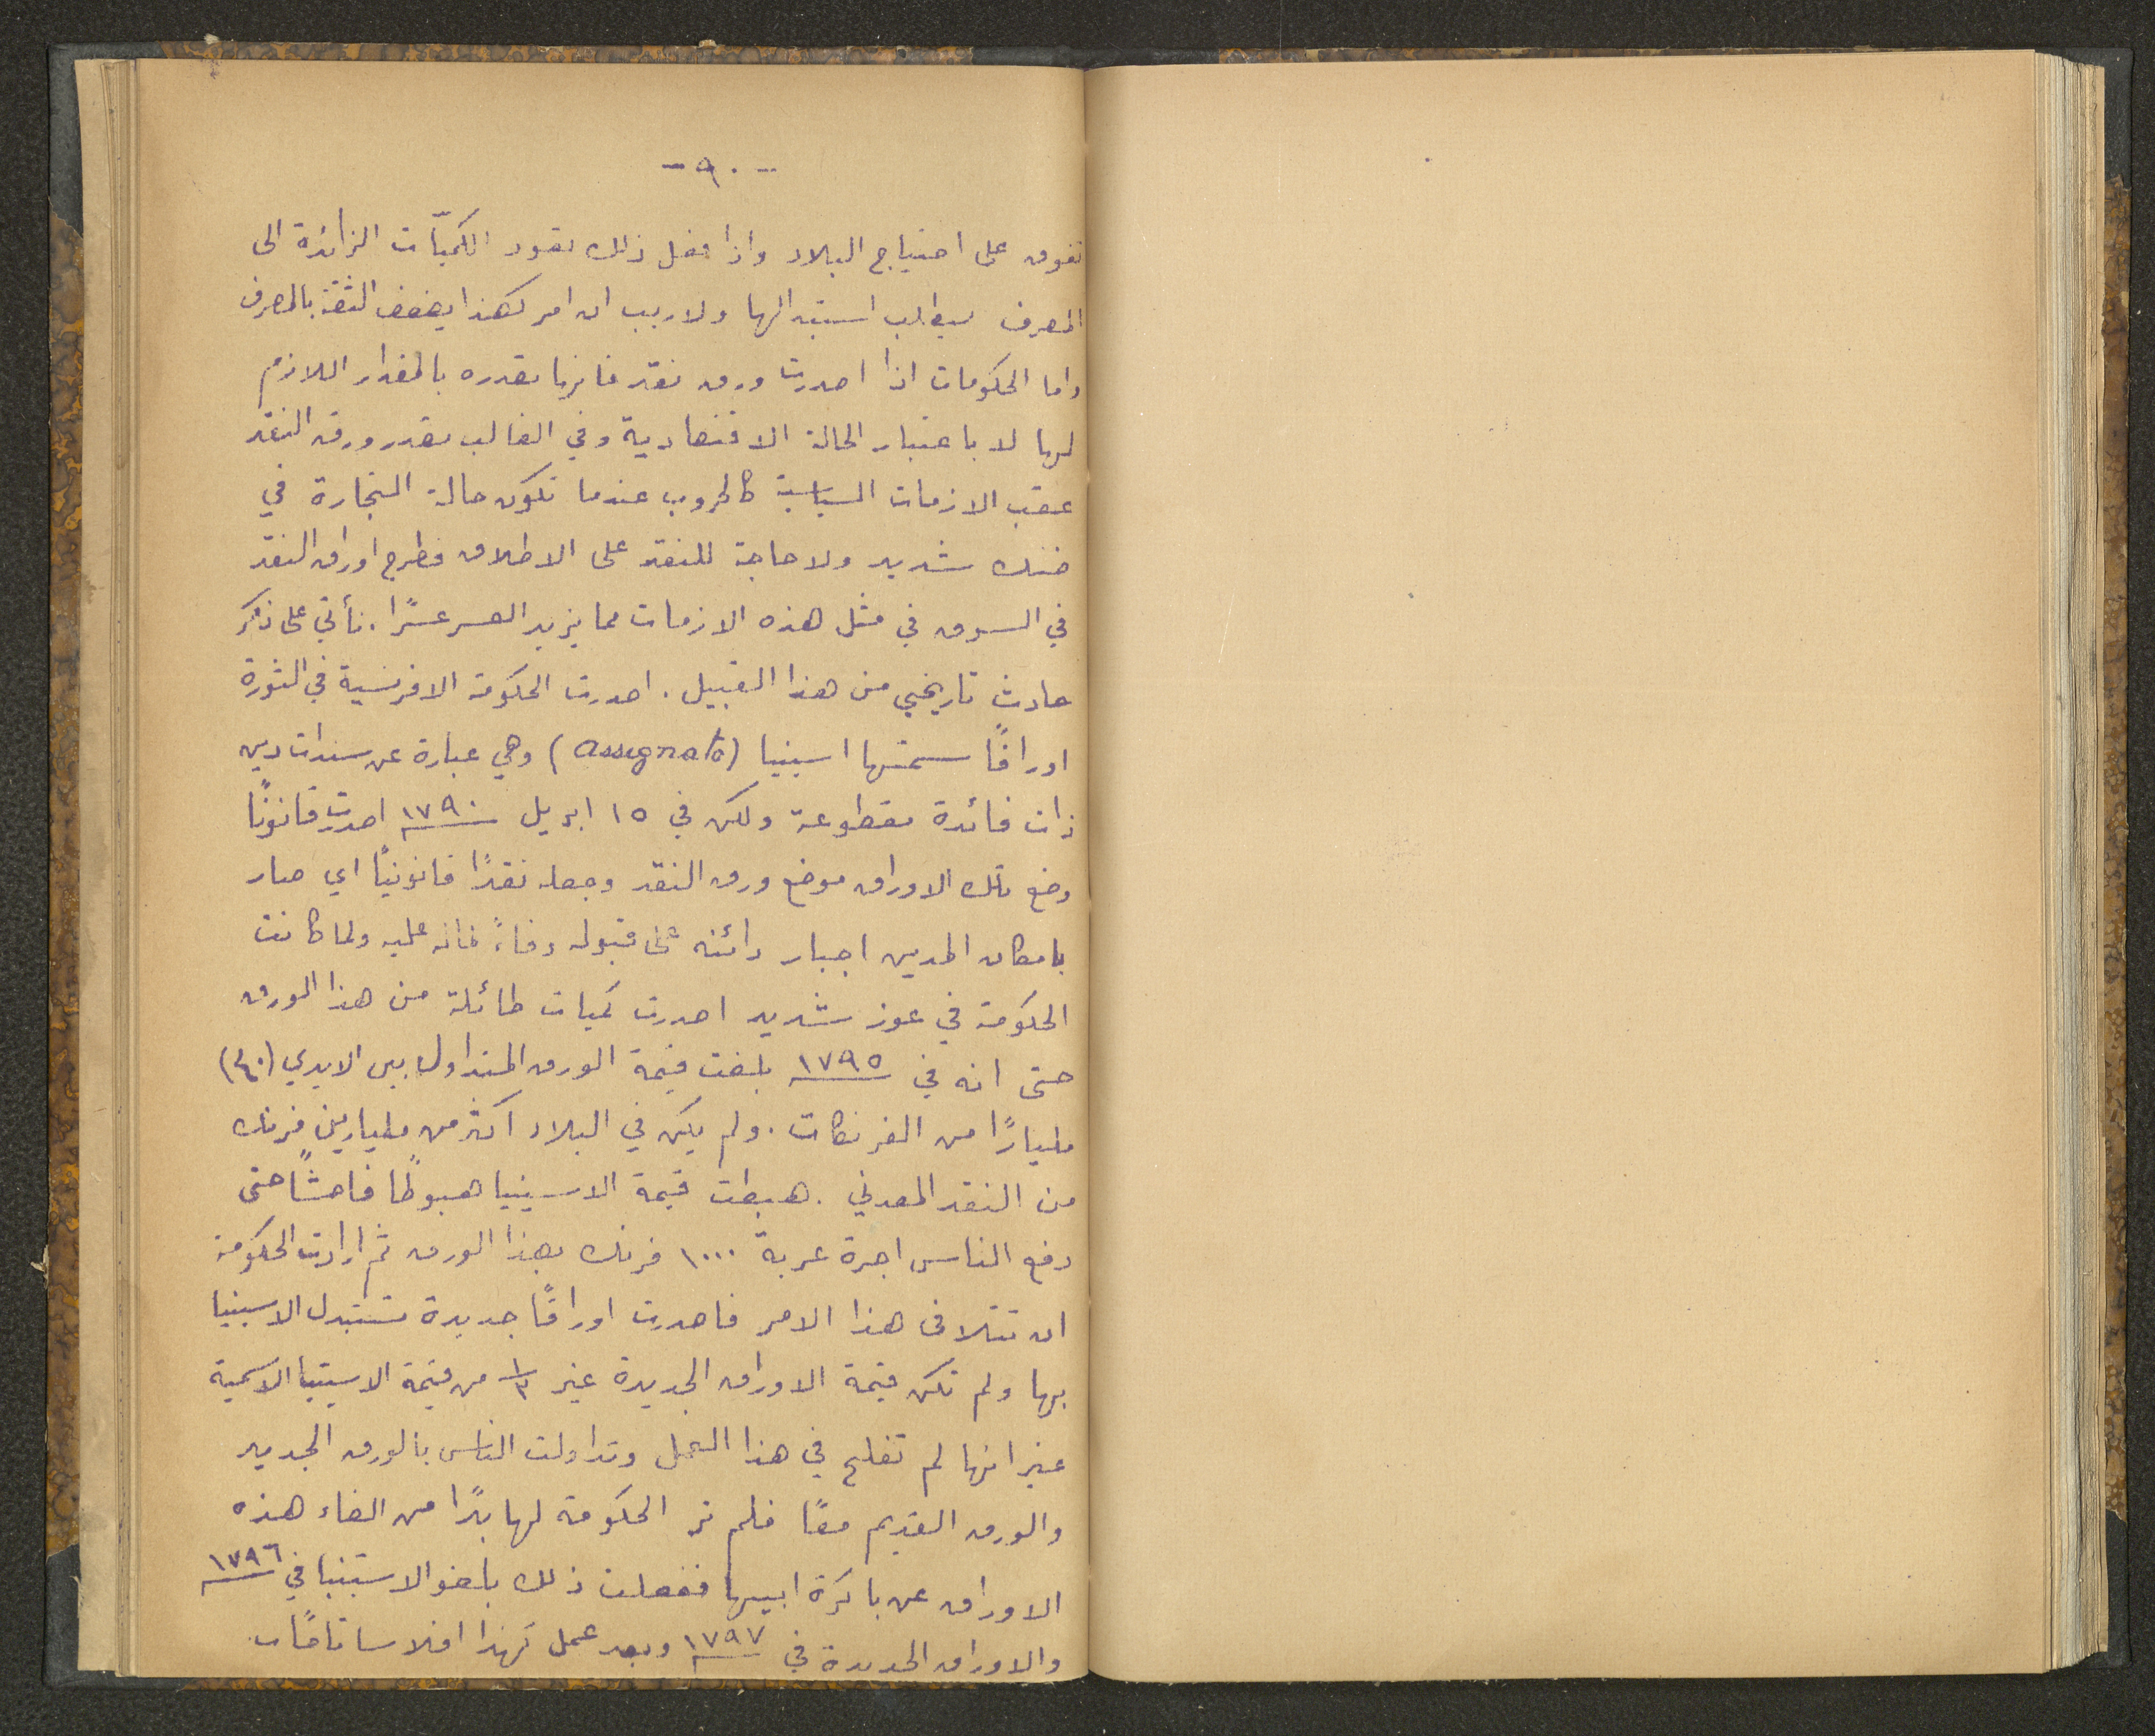 - ٩٠ -
تفوق على احتياج البلاد واذا فعل ذلك تعود الكميّات الزائدة الى
المصرف بطلب استبدالها ولا ريب ان امر كهذا يضعف الثقة بالمصرف
واما الحكومات اذا اصدرت ورق نقد فانها تقدره بالمقدار اللازم
لها لا باعتبار الحالة الاقتصادية وفي الغالب تصدر ورق النقد
عقب الازمات السياسية كالحروب عندما تكون حالة التجارة في
ضنك شديد ولا حاجة للنقد على الاطلاق فطرح اوراق النقد
في السوق في مثل هذه الازمات مما يزيد العسر عسرًا. نأتي على ذكر
حادث تاريخي من هذا القبيل. اصدرت الحكومة الافرنسية في الثورة
اوراقًا سمتها اسينيا (assignats) وهي عبارة عن سندات دين
ذات فائدة مقطوعة ولكن في ١٥ ابريل ١٧٩٠ اصدرت قانونًا
وضع تلك الاوراق موضع ورق النقد وجعله نقدًا قانونيًا اي صار
بامكان المدين اجبار دائنه على قبوله وفاءً لماله عليه ولما كانت
الحكومة في عوز شديد اصدرت كميات طائلة من هذا الورق
حتى انه في ١٧٩٥ بلغت قيمة الورق المتداول بين الايدي (٤٠)
مليارًا من الفرنكات. ولم يكن في البلاد اكثر من مليارين فرنك
من النقد المعدني. هبطت قيمة الاسينيا هبوطًا فاحشًا حتى
دفع الناس اجرة عربة ١٠٠٠ فرنك بهذا الورق ثم ارادت الحكومة
ان تتلافى هذا الامر فاصدرت اوراقًا جديدة تستبدل الاسينيا
بها ولم تكن قيمة الاوراق الجديدة غير ١/٣ من قيمة الاسينيا الاسمية
غير انها لم تفلح في هذا العمل وتداولت الناس بالورق الجديد
والورق القديم معًا فلم تر الحكومة لها بدًا من الغاء هذه
الاوراق عن باكرة ابيها ففعلت ذلك بلغو الاسينيا في ١٧٩٦
والاوراق الجديدة في ١٧٩٧ وبعد عمل كهذا افلاسا تامًا